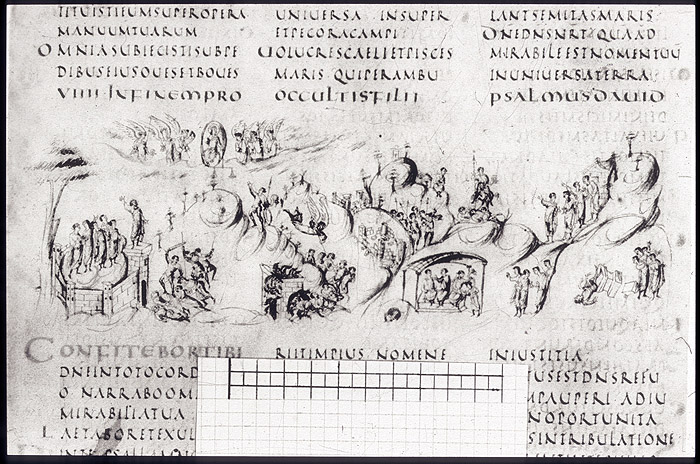 TITUISTIEUMSUPEROPERA
MANUUMTUARUM
OMNIASUBIECISTISUBPE
DIBUSEIUSOUESETBOUES
VIIII INFINEMPRO
UNIUERSA INSUPER
ETPECORACAMPI
UOLUCRESCAELIETPISCES
MARIS QUIPERAMBU
OCCULTISFILII
LANTSEMITASMARIS
DNEDNSNR QUAAD
MIRABILEESTNOMENTUU
INUNIUERSATERRA
PSALMUSDAUID
CONFITEBORTIBI
DNEINTOTOCORD
O NARRABOOM
MIRABILIATUA
LAETABORETEXUL
RIITIMPIUS NOMENE
INIUSTITIA
USESTDNSREFU
MPAUPERI ADIU
NOPORTUNITA
SINTRIBULATIONE